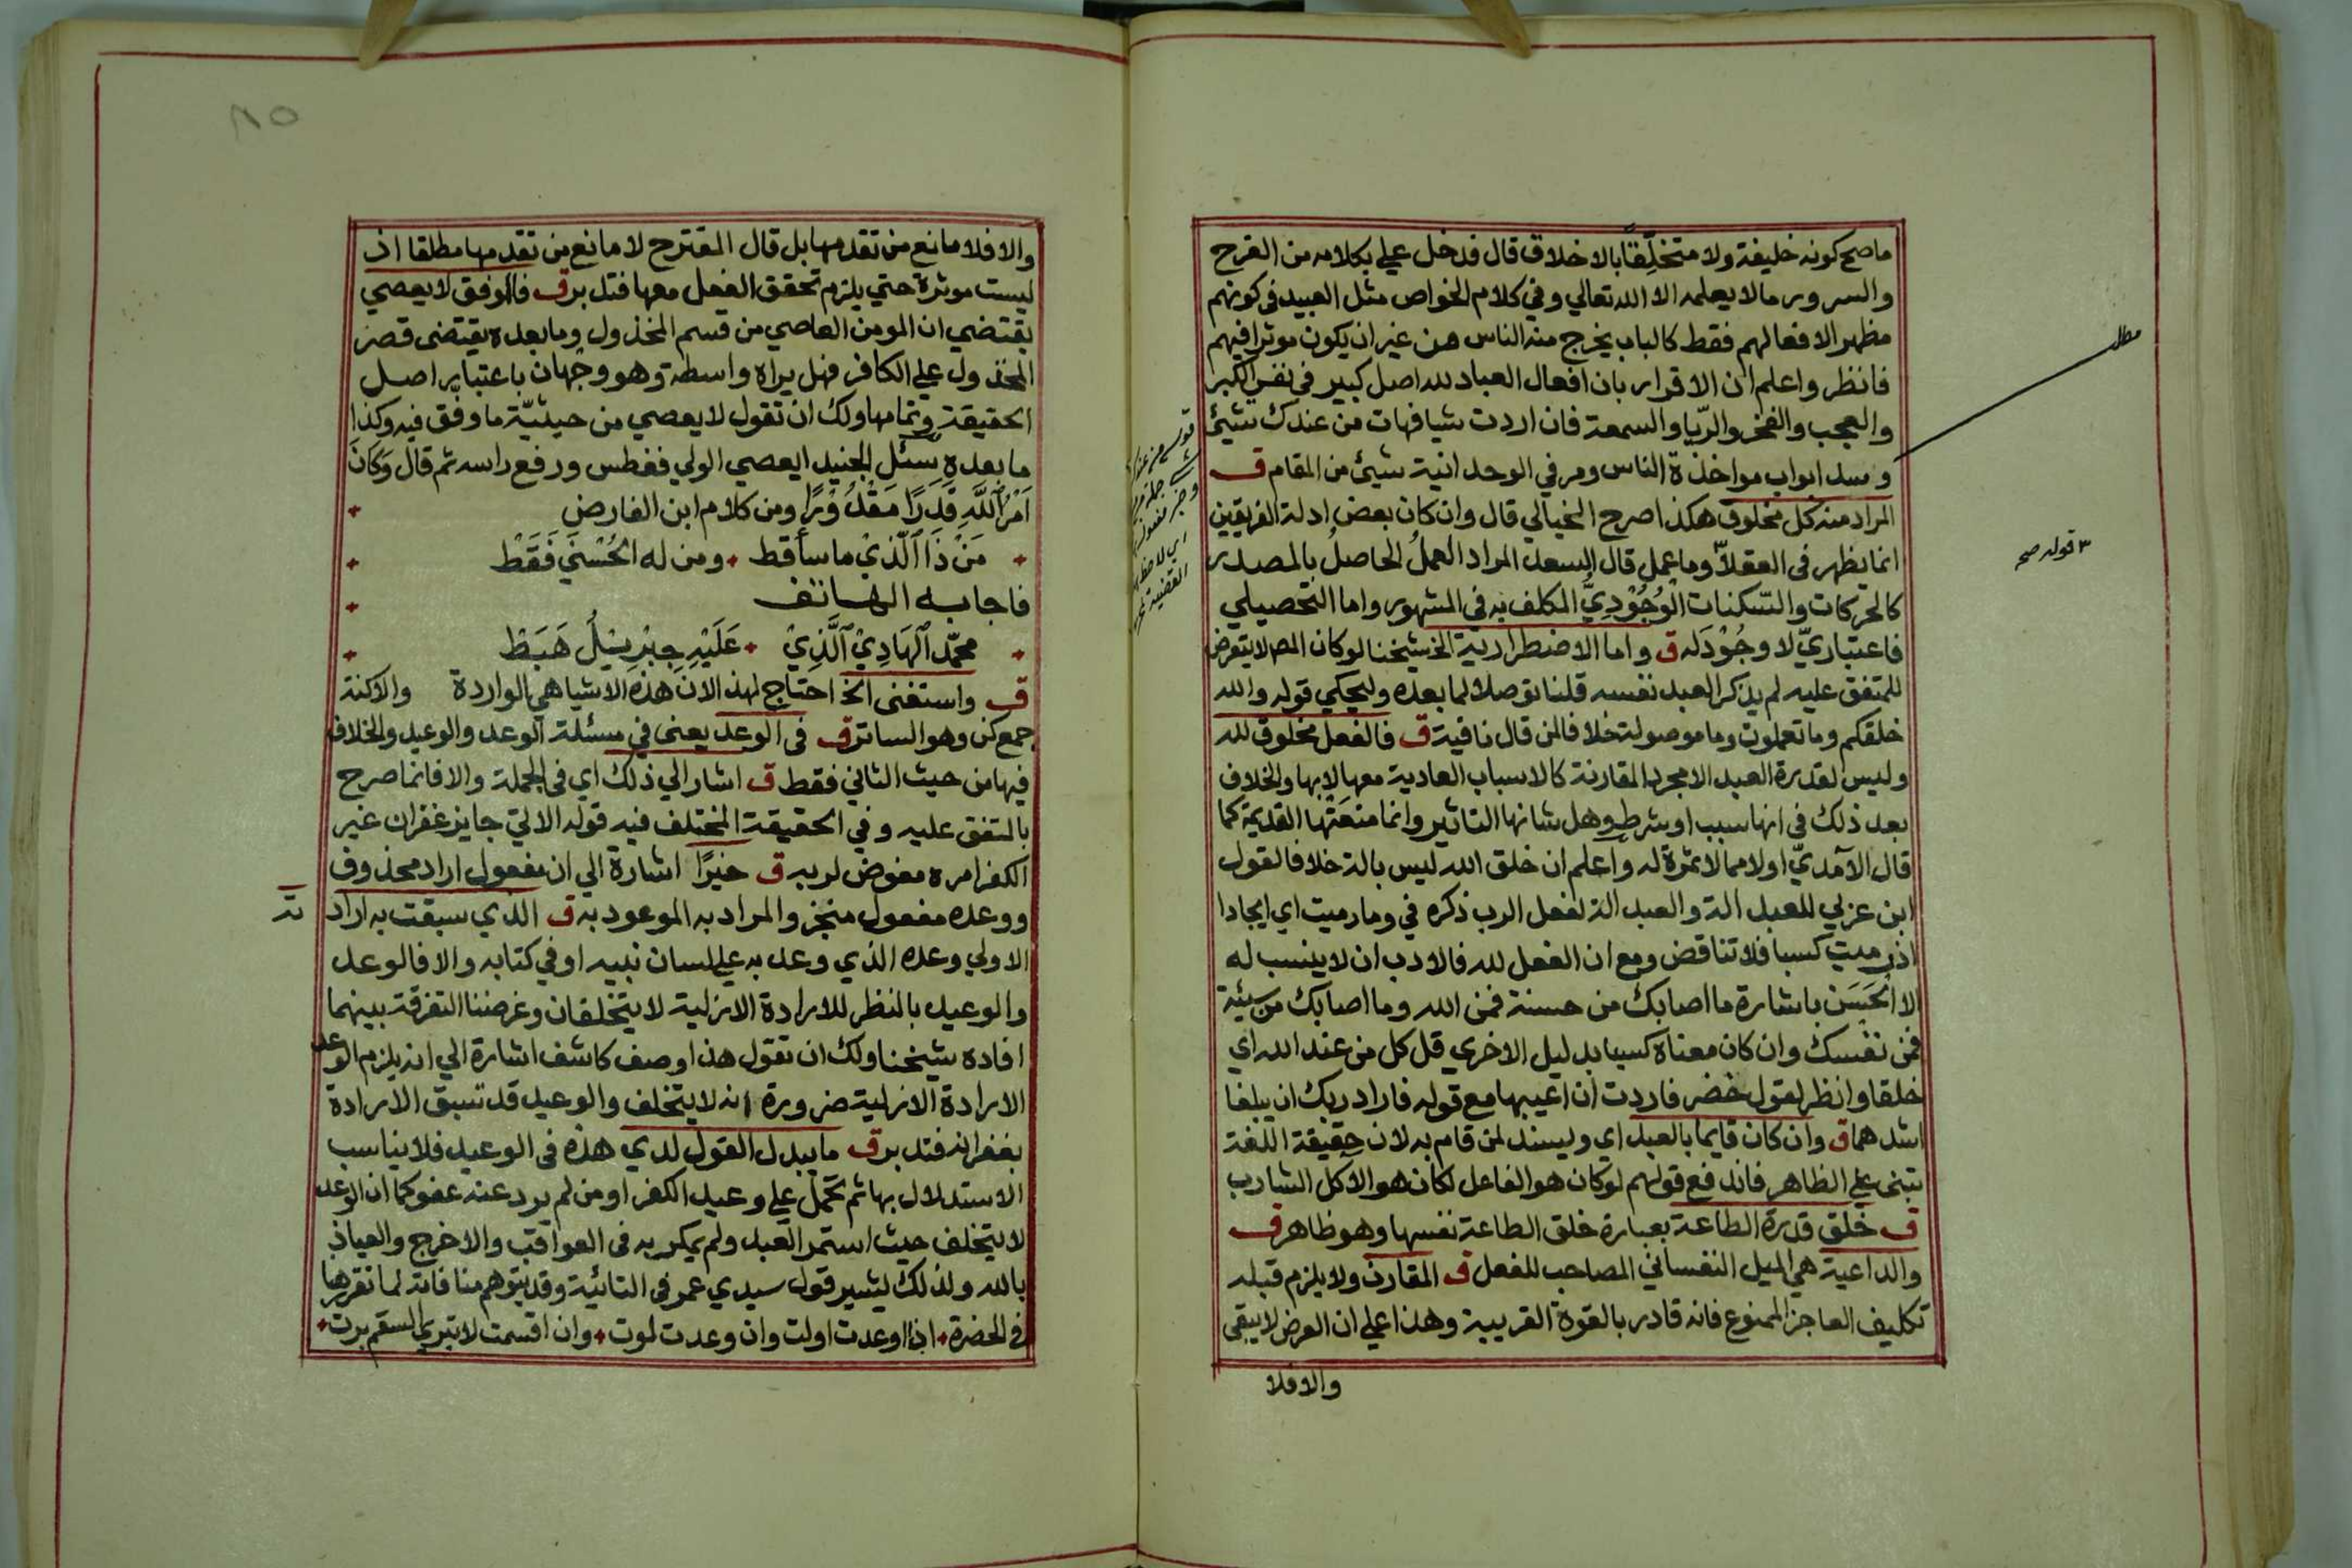 ما صح كونه خليفة ولا متخلِّقًا بالاخلاق قال فدخل علي بكلامه من الفرح
والسرور ما لا يعلمه الا الله تعالي وفي كلام الخواص مثل العبيد في كونهم
مظهر الافعالهم فقط كالباب يخرج منه الناس من غير ان يكون موثرا فيهم
فانظر واعلم ان الاقرار بان افعال العباد لله اصل كبير في نفي الكبر
والعجب والفخر والريا والسمعة فان اردت شيا فهات من عندك شيئ
وسد ابواب مواخذة الناس ومر في الوحدانية شيئ من المقام ق
المراد منه كل مخلوق هكذا صرح الخيالي قال وان كان بعض ادلة الفريقين
انما يظهر في العقلا وما عمل قال السعد المراد العملُ الحاصلُ بالمصدر
كالحركات والسكنات الوُجُوْدِيُّ المكلف به في المشهور واما التحصيلي
فاعتباريّ لا وجُوْدَ له ق واما الاضطرارية الخ شيخنا لو كان المص لا يتعرض
للمتفق عليه لم يذكر العبد نفسه قلنا توصلا لما بعده وليحكي قوله والله
خلقكم وما تعملون وما موصولة خلافا لمن قال نافية ق فالفعل مخلوق لله
وليس لقدرة العبد الا مجرد المقارنة كالاسباب العادية معها لا بها والخلاف
بعد ذلك في انها سبب او شرط وهل شانها التاثير وانما منعَتْها القديمة كما
قال الآمديّ اولا مما لا ثمرة له واعلم ان خلق الله ليس بالة خلافا لقول
ابن عربي للعبد الة والعبد الة لفعل الرب ذكره في وما رميت اي ايجادا
اذ رميت كسبا فلا تناقض ومع ان الفعل لله فالادب ان لا ينسب له
الا الحَسَن باشارة ما اصابك من حسنة فمن الله وما اصابك من سيئة
فمن نفسك وان كان معناه كسبا بدليل الاخري قل كل من عند الله اي
خلقا وانظر لقول خضر فاردت ان اعيبها مع قوله فاراد ربك ان يبلغا
اشدهما ق وان كان قايما بالعبد اي ويسند لمن قام به لان حقيقة اللغة
تبنى علي الظاهر فاندفع قولهم لو كان هو الفاعل لكان هو الآكل الشارب
ق خلق قدرة الطاعة بعبارة خلق الطاعة نفسها وهو ظاهر ق
والداعية هي الميل النفساني المصاحب للفعل ق المقارن ولا يلزم قبله
تكليف العاجز الممنوع فانه قادر بالقوة القريبة وهذا علي ان العرض لا يبقي
والا فلا
مطلب
قوله صح
والا فلا مانع من تقدمها بل قال المقترح لا مانع من تقدمها مطلقا اذ
ليست موثرة حتي يلزم تحقق الفعل معها فتدبر ق فالموفق لا يعصي
يقتضي ان المومن العاصي من قسم المخذول وما بعده يقتضى قصر
المخذول علي الكافر فهل يراه واسطة وهو وجهان باعتبار اصل
الحقيقة وتمامها ولك ان تقول لا يعصي من حيثيّة ما وفق فيه وكذا
ما بعده سئل الجنيد ايعصي الولي فغطس ورفع راسه ثم قال وَكَانَ
اَمْرُ اللَّهِ قَدَرًا مَقْدُوْرًا ومن كلام ابن الفارض
مَنْ ذَا الَّذِيْ ما ساَ قط ومن له الحُسْنَي فَقَطْ
فاجابه الهاتف
محمّد الهَادِيْ الَّذِيْ عَلَيْهِ جِبْرِيْلُ هَبَطْ
ق واستغنى الخ احتاج لهذا لان هذه الاشيا هي الواردة والاكنة
جمع كن وهو الساتر ق في الوعد يعني في مسئلة الوعد والوعيد والخلاف
فيها من حيث الثاني فقط ق اشار الي ذلك اي في الجملة والا فانما صرح
بالمتفق عليه وفي الحقيقة المختلف فيه قوله الاتي جايز غفران غير
الكفر امره مفوض لربه ق خيرًا اشارة الي ان مفعول اراد محذوف
ووعده مفعول منجز والمراد به الموعود به ق الذي سبقت به اراد
ته
الاولي وعده الذي وعد به علي لسان نبيه او في كتابه والا فالوعد
والوعيد بالنظر للارادة الازلية لا يتخلفان وغرضنا التفرقة بينهما
افاده شيخنا ولك ان تقول هذا وصف كاشف اشارة الي انه يلزم الوعد
الارادة الازلية ضرورة انه لا يتخلف والوعيد قد تسبق الارادة
بغفرانه فتدبر ق ما يبدل القول لدي هذه في الوعيد فلا يناسب
الاستدلال بها ثم تحمل علي وعيد الكفر او من لم يرد عنه عفو كما ان الوعد
لا يتخلف حيث استمر العبد ولم يمكر به في العواقب والاخرج والعياذ
بالله ولذلك يشير قول سيدي عمر في التائية وقد يتوهم منافاته لما تقرر ها
في الحضرة اذا اوعدت اولت وان وعدت لوت وان اقسمت لا تبري السقم برت